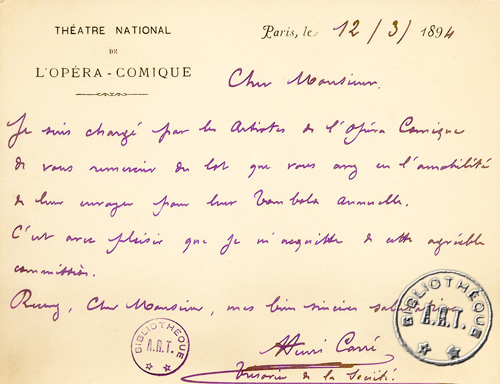 THÉATRE NATIONAL
DE
L'OPÉRA-COMIQUE
Paris, le 12/3/1894
Cher Monsieur.
Je suis chargé par les Artistes de l'Opéra Comique
de vous remercier du lot que vous avez eu l'amabilité
de leur envoyer pour leur Tombola annuelle.
C'est avec plaisir que je m'acquitte de cette agréable
commission.
Recevez, Cher Monsieur, mes bien sincères salutations
Henri Carré
Trésorier de la Société.
BIBLIOTHÈQUE
A.R.T.
BIBLIOTHÈQUE
A.R.T.